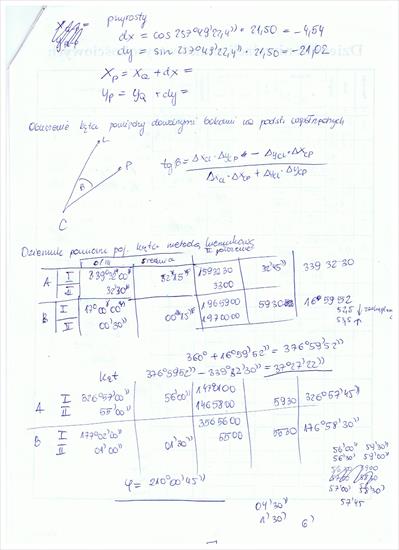 przyrosty
dx = cos 257°49'22,4'' · 21,50 = -4,54
dy = sin 257°49'22,4'' · 21,50 = -21,02
Xp = XQ + dx =
Yp = YQ + dy =
kąta pomiędzy dowolnymi bokami na podst. współrzędnych
L
P
β
C
tg β = ΔXCL · ΔYCP - ΔYCL · ΔXCP
ΔXCL · ΔXCP + ΔYCL · ΔYCP
Dziennik pomiaru poj. kąta metodą kierunkową
II położenie
I i II średnia
A I 339°32'00'' 32'15'' 1593230 32'45'' 339 32 30
II 32'30'' 3300
B I 17°00'00'' 00'15'' 1965900 5930 16°59 52
II 00'30'' 1970000
52,5
360° + 16°59'52'' = 376°59'52''
kąt 376°59'52'' - 339°32'30'' = 37°27'22''
A I 326°57'00'' 56'00'' 1478100 5930 326°57'45''
II 55'00'' 1465800
B I 177°02'00'' 01'30'' 3565600 5530 176°58'30''
II 01'00'' 5500
56'00'' 59'30''
56'30' 59'00''
57'00' 58'30'
57'45
φ = 210°00'45''
04'30''
1'30'
6'